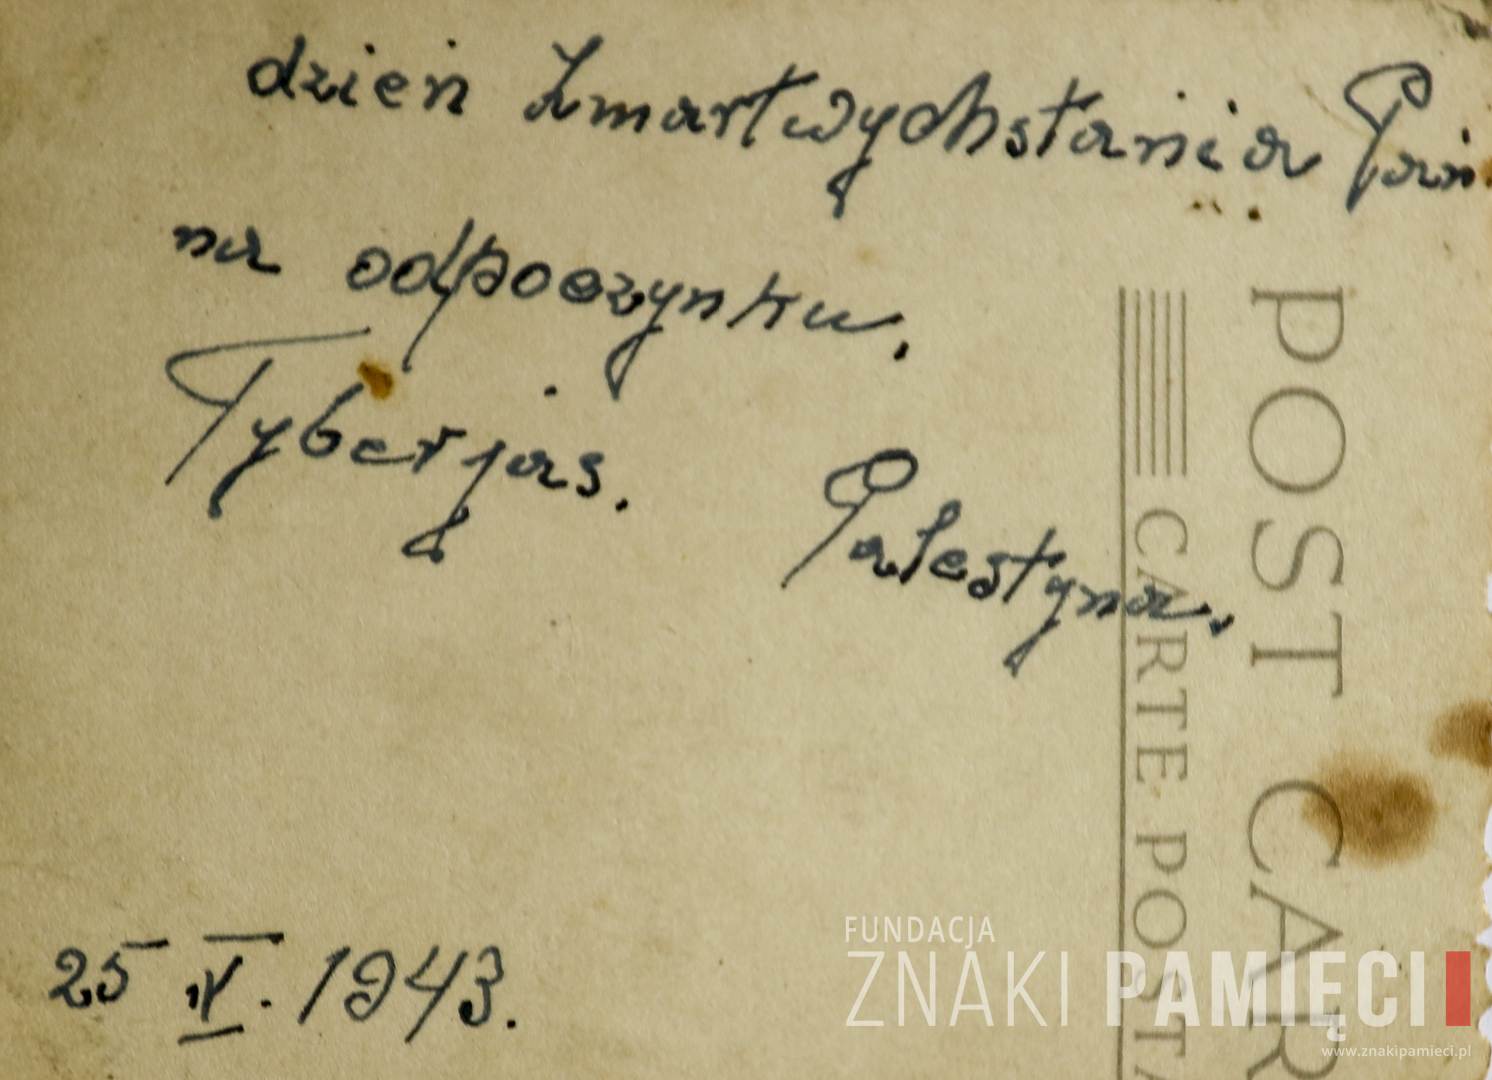 dzień Zmartwychstania Pań
na odpoczynku.
Tyberjas. Palestyna.
25 IV. 1943.
POST CAR
CARTE POSTA
FUNDACJA
ZNAKI PAMIĘCI
www.znakipamieci.pl